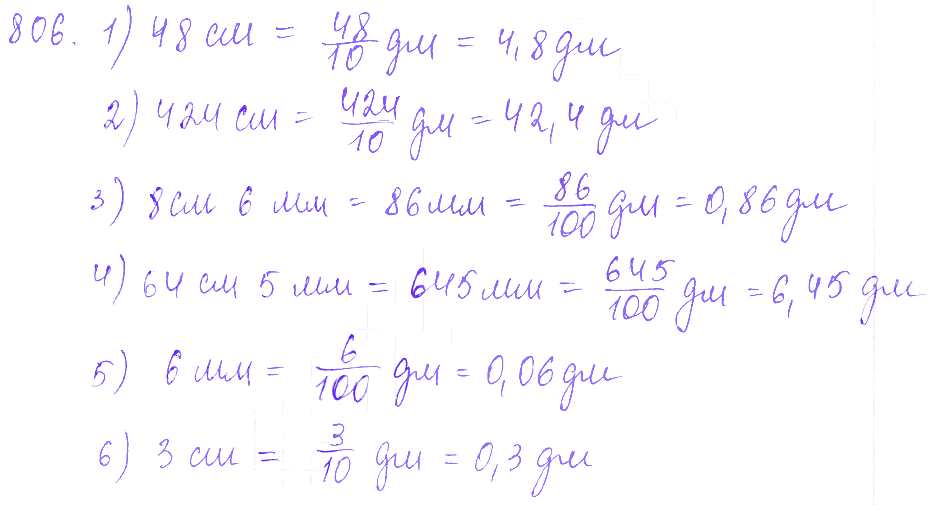 806. 1) 48 см = 48/10 дм = 4,8 дм
2) 424 см = 424/10 дм = 42,4 дм
3) 8 см 6 мм = 86 мм = 86/100 дм = 0,86 дм
4) 64 см 5 мм = 645 мм = 645/100 дм = 6,45 дм
5) 6 мм = 6/100 дм = 0,06 дм
6) 3 см = 3/10 дм = 0,3 дм